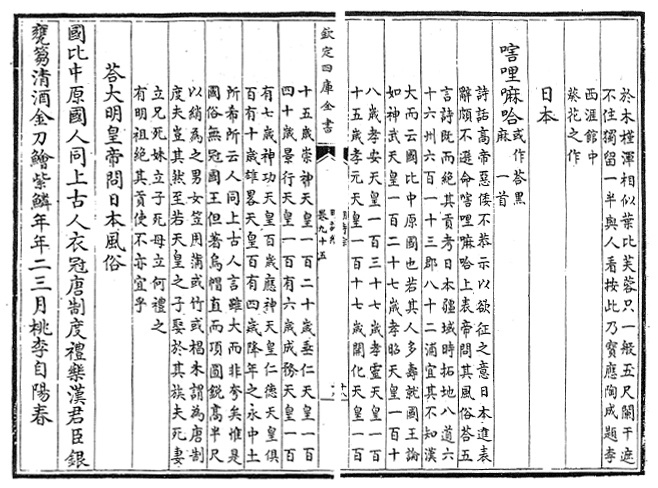 於木槿渾相似葉比芙蓉只一般五尺闌干遮
不住獨留一半與人看按此乃寳應陶成題李
西涯館中
葵花之作
日本
嗐哩嘛哈或作答黑
麻 一首
詩話高帝惡倭不恭示以欲征之意日本進表
辭頗不遜命嗐哩嘛哈上表帝問其風俗答五
言詩既而絶其貢考日本疆域時拓地八道六
十六州六百一十三郡八十二浦宜其不知漢
大而云國比中原國也若其人多壽就國王論
如神武天皇一百二十七歲孝昭天皇一百十
八歲孝安天皇一百三十七歲孝靈天皇一百
十五歲孝元天皇一百十七歲開化天皇一百
欽定四庫全書
卷九十五
十五歲崇神天皇一百二十歲垂仁天皇一百
四十歲景行天皇一百有六歲成務天皇一百
有七歲神功天皇百歲應神天皇仁德天皇俱
百有十歲雄畧天皇百有四歲降年之永中土
所希所云人同上古人言雖大而非夸矣惟是
國俗無冠國王但著烏帽直而頂圓鋭髙半尺
以綃為之男女笠用蒲或竹或榻木謂為唐制
度夫豈其然至若天皇之子娶於其族夫死妻
立兄死妹立子死母立何禮之
有明祖絶其貢使不亦宜乎
荅大明皇帝問日本風俗
國比中原國人同上古人衣冠唐制度禮樂漢君臣銀
甕篘清酒金刀鱠紫鱗年年二三月桃李自陽春